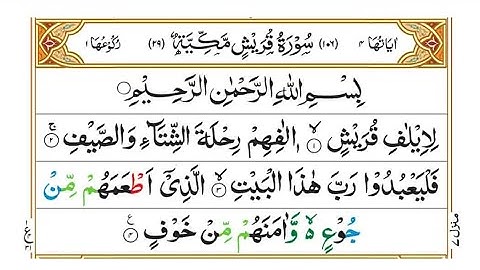 اٰيَاتُهَا ٤ (١٠٦) سُوْرَةُ قُرَيْشٍ مَّكِّيَّةٌ (٢٩) رُكُوْعُهَا ١
بِسْمِ اللّٰهِ الرَّحْمٰنِ الرَّحِيْمِ
لِاِيْلٰفِ قُرَيْشٍ ۙ﴿١﴾ اٖلٰفِهِمْ رِحْلَةَ الشِّتَآءِ وَالصَّيْفِ ۚ﴿٢﴾
فَلْيَعْبُدُوْا رَبَّ هٰذَا الْبَيْتِ ۙ﴿٣﴾ الَّذِيْٓ اَطْعَمَهُمْ مِّنْ
جُوْعٍ ۙ۬ وَّاٰمَنَهُمْ مِّنْ خَوْفٍ ۧ﴿٤﴾
منزل ٧